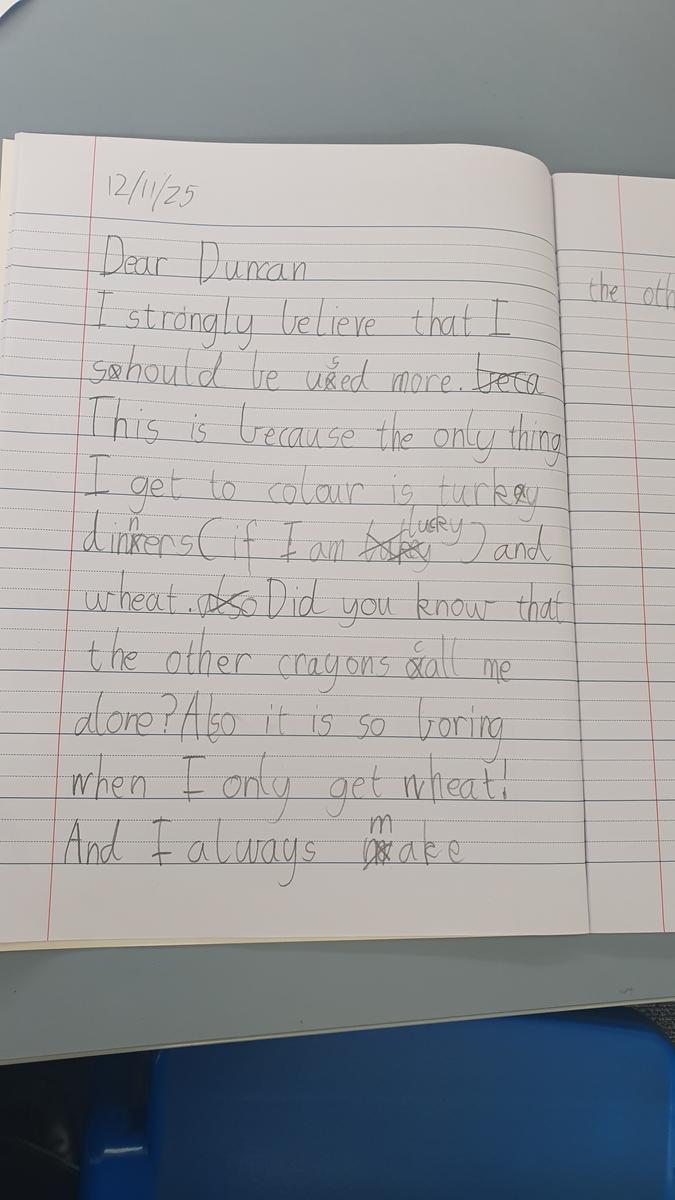 12/11/25
Dear Duncan
I strongly believe that I
should be used more.
This is because the only thing
I get to colour is turkey
dinners (if I am lucky) and
wheat. Did you know that
the other crayons call me
alone? Also it is so boring
when I only get wheat!
And I always make
the oth